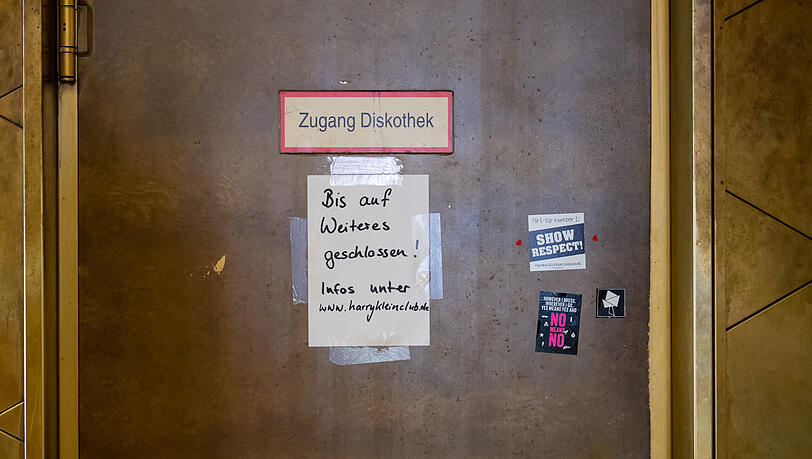 Zugang Diskothek
Bis auf
Weiteres
geschlossen!
Infos unter
www.harrykleinclub.de
Flirt-tip number 1:
SHOW
RESPECT!
HOWEVER I DRESS,
WHEREVER I GO,
YES MEANS YES AND
NO
MEANS
NO